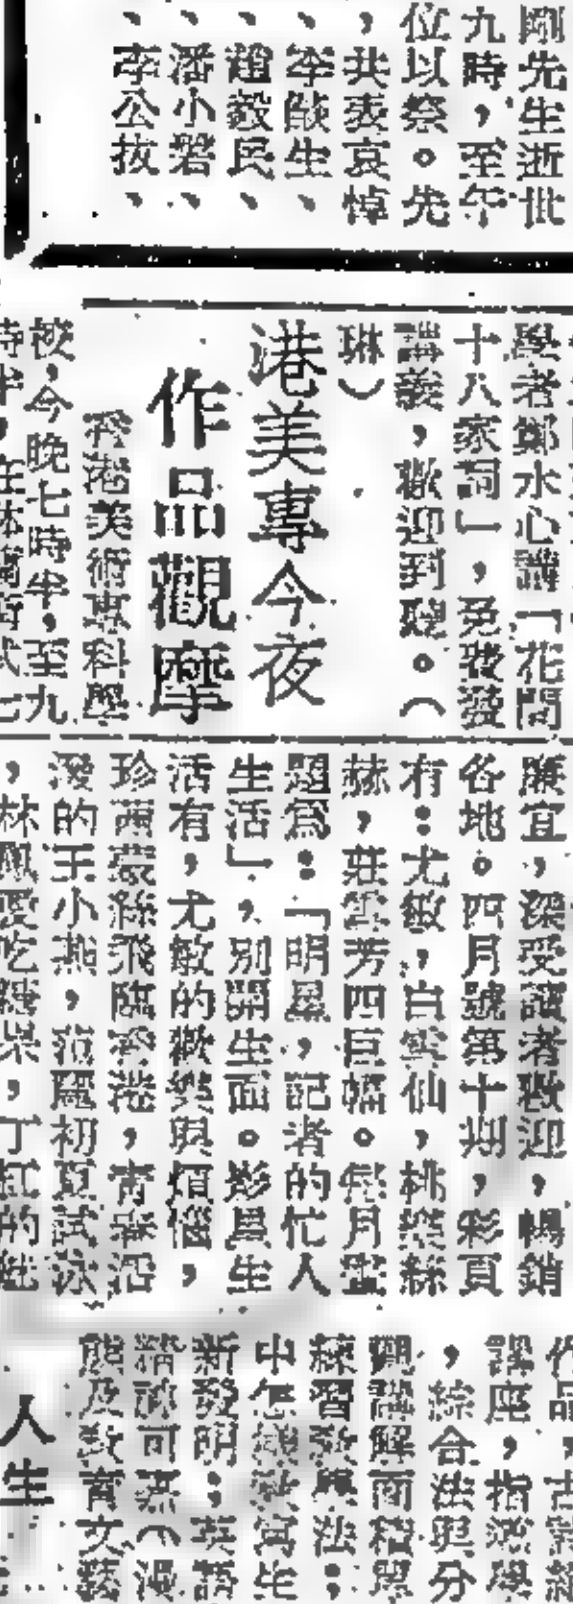 剛先生逝世
九時，至午
位以祭。先
，共表哀悼
、岑㷫生、
、趙毅民、
、潘小磐、
、李公拔、
學者鄭水心講「花間
十八家詞」，免費發
講義，歡迎到聽。（
琳）
港美專今夜
作品觀摩
香港美術專科學
校，今晚七時半，至九
時半，在
廉宜，深受讀者歡迎，暢銷
各地。四月號第十期，彩頁
有：尤敏，白雪仙，桃樂絲
赫，莊雪芳四巨幅。每月
題為：「明星，記者的忙人
生活」，別開生面。影星生
活有，尤敏的歡樂與煩惱，
珍茜蒙絲飛臨香港，青春活
潑的王小燕，范麗初夏試泳
，林鳳愛吃糖果，丁紅的
作品，古
講座，指
，綜合法與分
講解
練習
中怎樣
新發明；英語
可
態及教育文藝
人生